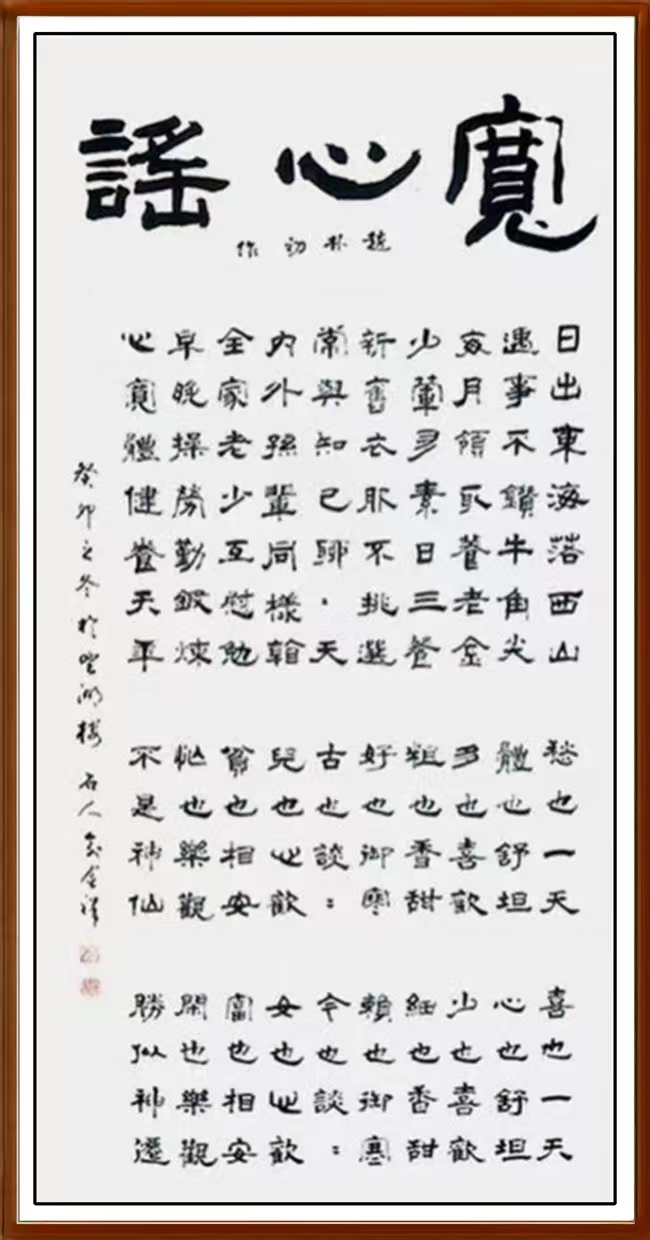 寬心謠
趙朴初作
日出東海落西山 愁也一天 喜也一天
遇事不鑽牛角尖 體也舒坦 心也舒坦
每月領取養老金 多也喜歡 少也喜歡
少葷多素日三餐 粗也香甜 細也香甜
新舊衣服不挑選 好也御寒 賴也御寒
常與知己聊：天 古也談： 今也談：
內外孫輩同樣翰 兒也心歡 女也心歡
全家老少互慰勉 貧也相安 富也相安
早晚操勞勤鍛煉 忙也樂觀 閑也樂觀
心寬體健養天年 不是神仙 勝似神遷
癸卯之冬於望湖樓 石人